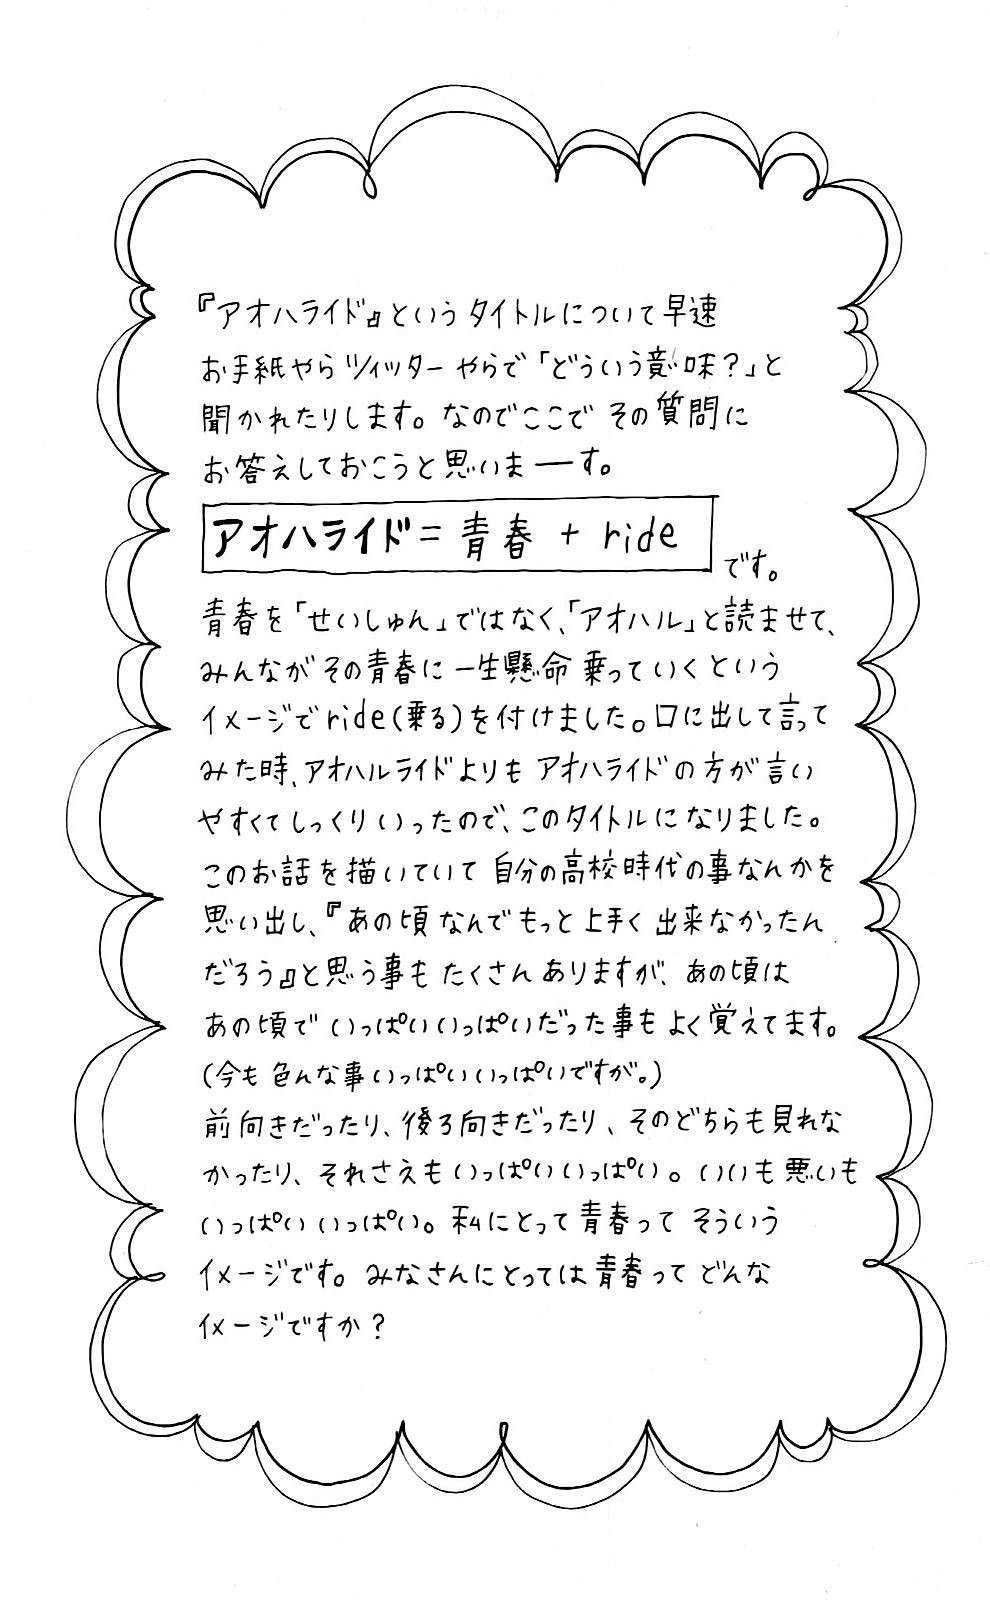 『アオハライド』というタイトルについて早速
お手紙やらツィッターやらで「どういう意味？」と
聞かれたりします。なのでここでその質問に
お答えしておこうと思いまーす。
アオハライド＝青春 + ride
です。
青春を「せいしゅん」ではなく、「アオハル」と読ませて、
みんながその青春に一生懸命乗っていくという
イメージでride(乗る)を付けました。口に出して言って
みた時、アオハルライドよりもアオハライドの方が言い
やすくてしっくりいったので、このタイトルになりました。
このお話を描いていて自分の高校時代の事なんかを
思い出し、『あの頃なんでもっと上手く出来なかったん
だろう』と思う事もたくさんありますが、あの頃は
あの頃でいっぱいいっぱいだった事もよく覚えてます。
(今も色んな事いっぱいいっぱいですが。)
前向きだったり、後ろ向きだったり、そのどちらも見れな
かったり、それさえもいっぱいいっぱい。いいも悪いも
いっぱいいっぱい。私にとって青春ってそういう
イメージです。みなさんにとっては青春ってどんな
イメージですか？